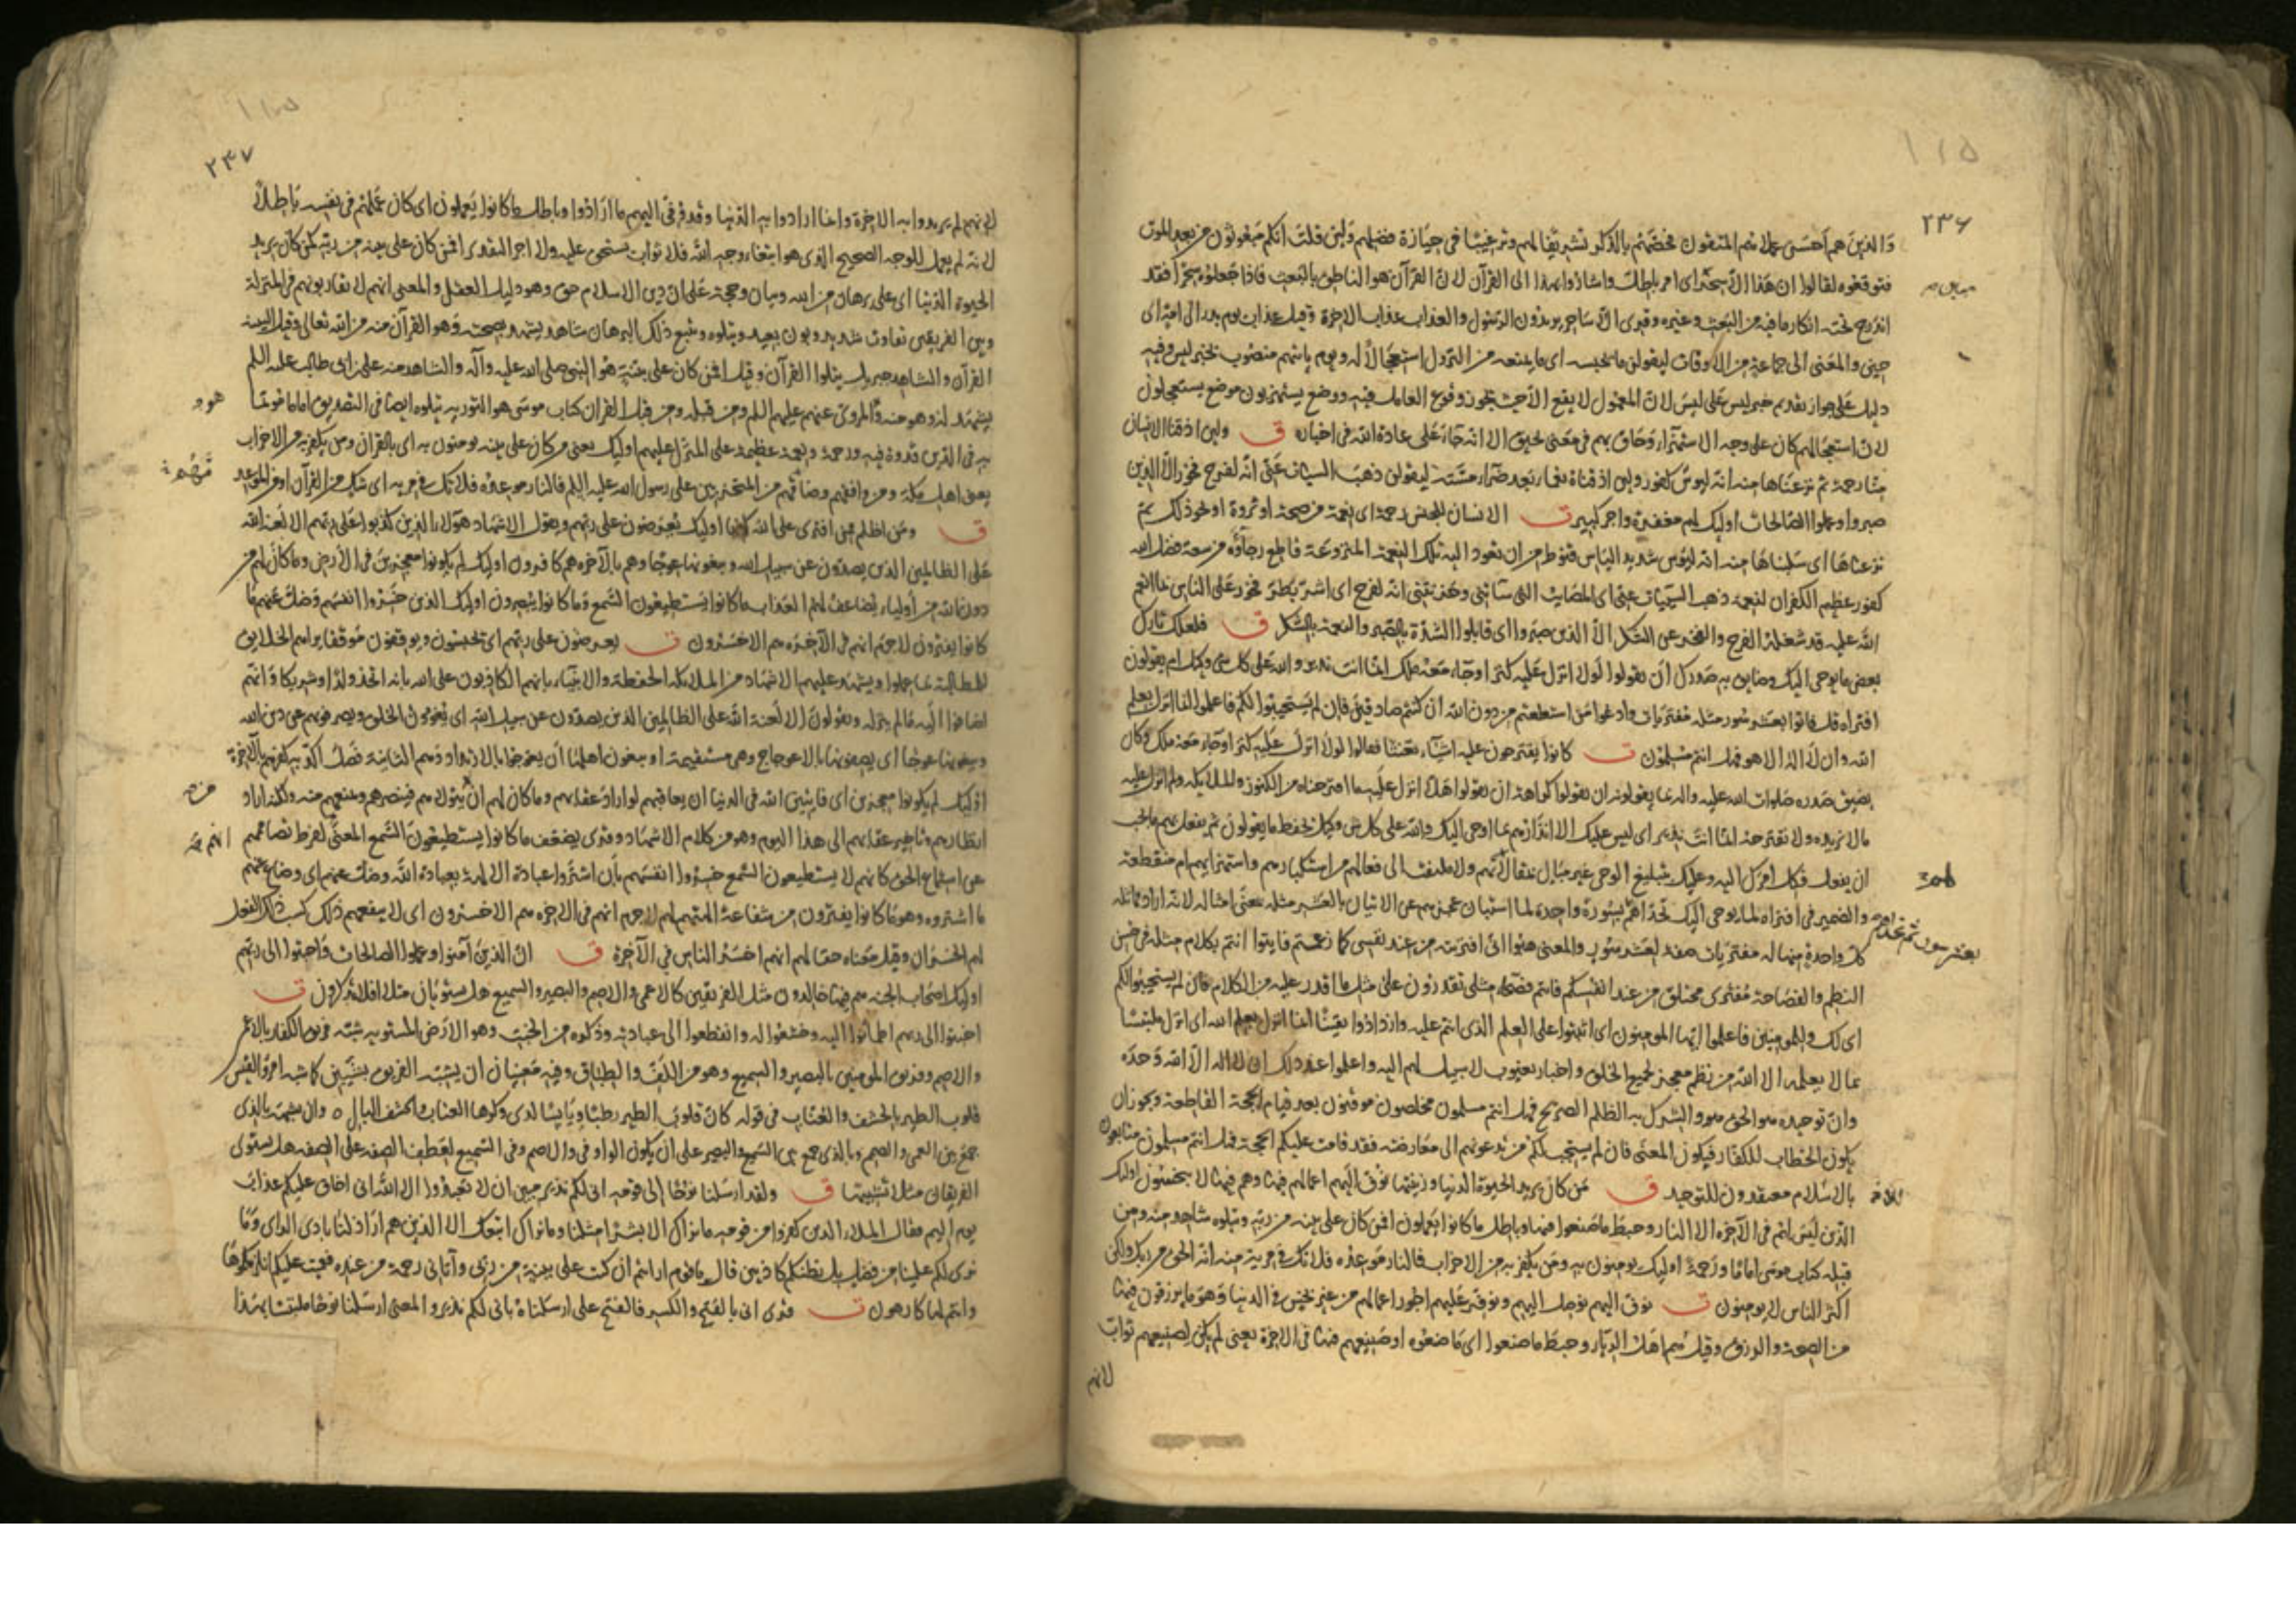 ٢٣٦
والذين هم احسن عملا هم المتقون فخصّهم بالذكر تشريفا لهم وترغيبا في حيازة فضلهم ولئن قلت انكم مبعوثون من بعد الموت
فتوقعوه لقالوا ان هذا الا سحر اى امر باطل واشاروا بهذا الى القرآن لان القرآن هو الناطق بالبعث فاذا جعلوه سحرا فقد
اندرج تحته انكار ما فيه من البعث وغيره وقرى الا ساحر يريدون الرسول والعذاب عذاب الاخرة وقيل عذاب يوم بدر الى امة اى
حين والمعنى الى جماعة من الاوقات ليقولن ما يحبسه اى ما يمنعه من النزول استعجالا له ويوم ياتيهم منصوب بخبر ليس وفيه
دليل على جواز تقديم خبر ليس على ليس لان المعمول لا يقع الا حيث يجوز وقوع العامل فيه ووضع يستهزون موضع يستعجلون
لان استعجالهم كان على وجه الاستهزاء وحاق بهم في معنى يحيق الا انه جاء على عادة الله في اخباره ق ولئن اذقنا الانسان
منا رحمة ثم نزعناها منه انه ليوس كفور ولئن اذقناه نعماء بعد ضراء مسته ليقولن ذهب السيئات عني انه لفرح فخور الا الذين
صبروا وعملوا الصالحات اوليك لهم مغفرة واجر كبير ت الانسان للجنس رحمة اى نعمة من صحة او ثروة او نحو ذلك ثم
نزعناها اى سلبناها منه انه ليوس شديد الياس قنوط من ان تعود اليه تلك النعمة المنزوعة قاطع رجاؤه من سعة فضل الله
كفور عظيم الكفران لنعمه ذهب السيئات عني اى المصايب التي ساءتني وحزنتني انه لفرح اى اشر بطر فخور على الناس بما انعم
الله عليه قد شغله الفرح والفخر عن الشكر الا الذين صبروا اى قابلوا الشدة بالصبر والنعمة بالشكر ق فلعلك تارك
بعض ما يوحى اليك وضايق به صدرك ان يقولوا لولا انزل عليه كنز او جاء معه ملك انما انت نذير والله على كل شى وكيل ام يقولون
افتراه قل فاتوا بعشر سور مثله مفتريات وادعوا من استطعتم من دون الله ان كنتم صادقين فان لم يستجيبوا لكم فاعلموا انما انزل بعلم
الله وان لا اله الا هو فهل انتم مسلمون ت كانوا يقترحون عليه اشياء تعنتا فقالوا لولا انزل عليه كنز او جاء معه ملك وكان
يضيق صدره صلوات الله عليه واله بما يقولونه ان يقولوا كراهة ان يقولوا هلا انزل عليه ما اقترحناه من الكنوز والملايكة ولم انزل عليه
مالا نريده ولا نقترحه انما انت نذير اى ليس عليك الا انذارهم بما اوحى اليك والله على كل شى وكيل يحفظ ما يقولون ثم يفعل بهم ما يجب
كل واحدة منها له مفتريات صفة لعشر سور والمعنى هبوا انى افتريته من عند نفسى كما زعمتم فايتوا انتم بكلام مثله في حسن
النظم والفصاحة مفترى مختلق من عند انفسكم فانتم فصحاء مثلى تقدرون على مثل ما اقدر عليه من الكلام فان لم يستجيبوا لكم
اى لك وللمومنين فاعلموا ايها المومنون اى اثبتوا على العلم الذى انتم عليه وازدادوا يقينا انما انزل بعلم الله اى انزل ملتبسا
بما لا يعلمه الا الله من نظم معجز لجميع الخلق واخبار بغيوب لا سبيل لهم اليه واعلموا عند ذلك ان لا اله الا الله وحده
وان توحيده هو الحق والشرك به الظلم الصريح فهل انتم مسلمون مخلصون موقنون بعد قيام الحجة القاطعة ويجوز ان
يكون الخطاب للكفار فيكون المعنى فان لم يستجب لكم من تدعونهم الى معارضته فقد قامت عليكم الحجة فهل انتم مسلمون متابعون
بالاسلام معتقدون للتوحيد ق من كان يريد الحيوة الدنيا وزينتها نوف اليهم اعمالهم فيها وهم فيها لا يبخسون اوليك
الذين ليس لهم في الآخرة الا النار وحبط ما صنعوا فيها وباطل ما كانوا يعملون افمن كان على بينة من ربه ويتلوه شاهد منه ومن
قبله كتاب موسى اماما ورحمة اوليك يومنون به ومن يكفر به من الاحزاب فالنار موعده فلا تك في مرية منه انه الحق من ربك ولكن
اكثر الناس لا يومنون ت نوف اليهم نوصل اليهم ونوفر عليهم اجور اعمالهم من غير بخس في الدنيا وهو ما يرزقون فيها
من الصحة والرزق وقيل هم اهل الريا وحبط ما صنعوا اى ما صنعوه او صنيعهم فيها في الاخرة يعنى لم يكن لصنيعهم ثواب
لانهم
٢٣٧
لانهم لم يريدوا به الاخرة وانما ارادوا به الدنيا وقد وفى اليهم ما ارادوا وباطل ما كانوا يعملون اى كان عملهم في نفسه باطلا
لانه لم يعمل للوجه الصحيح الذى هو ابتغاء وجه الله فلا ثواب يستحق عليه ولا اجر افمن كان على بينة من ربه كمن كان يريد
الحيوة الدنيا اى على برهان من الله وبيان وحجة على ان دين الاسلام حق وهو دليل العقل والمعنى انهم لا يقاربونهم في المنزلة
وبين الفريقين تفاوت شديد وبون بعيد ويتلوه ويتبع ذلك البرهان شاهد يشهد بصحته وهو القرآن منه من الله تعالى وقيل البينة
القرآن والشاهد جبريل يتلوا القرآن وقيل افمن كان على بينة هو النبى صلى الله عليه وآله والشاهد منه على بن ابى طالب عليه السلم
يشهد له وهو منه والمروى عنهم عليهم السلم ومن قبله ومن قبل القران كتاب موسى هو التورية يتلوه ايضا في التصديق اماما موتما
به في الدين قدوة فيه ورحمة ونعمة عظيمة على المنزل عليهم اوليك يعنى من كان على بينة يومنون به اى بالقران ومن يكفر به من الاحزاب
يعنى اهل مكة ومن وافقهم وضامهم من المتحزبين على رسول الله عليه السلم فالنار موعده فلا تك في مرية اى شك من القرآن او من الموعد
ق ومن اظلم ممن افترى على الله كذبا اوليك يعرضون على ربهم ويقول الاشهاد هولاء الذين كذبوا على ربهم الا لعنة الله
على الظالمين الذين يصدون عن سبيل الله ويبغونها عوجا وهم بالآخرة هم كافرون اوليك لم يكونوا معجزين في الارض وما كان لهم من
دون الله من اولياء يضاعف لهم العذاب ما كانوا يستطيعون السمع وما كانوا يبصرون اوليك الذين خسروا انفسهم وضل عنهم ما
كانوا يفترون لا جرم انهم في الآخرة هم الاخسرون ت يعرضون على ربهم اى يحبسون ويوقفون موقفا يراهم الخلايق
للمطالبة بما عملوا ويشهد عليهم الاشهاد من الملايكة الحفظة والانبياء بانهم الكاذبون على الله بانه اتخذ ولدا وشريكا وانهم
اضافوا اليه مالم ينزله ويقولون الا لعنة الله على الظالمين الذين يصدون عن سبيل الله اى يغوون الخلق ويصرفونهم عن دين الله
ويبغونها عوجا اى يصفونها بالاعوجاج وهى مستقيمة او يبغون اهلها ان يعوجوا بالارتداد وهم الثانية فصل اكد به كفرهم بالآخرة
اوليك لم يكونوا معجزين اى فايتين الله في الدنيا ان يعاقبهم لو اراد عقابهم وما كان لهم ان يتولاهم فينصرهم ويمنعهم منه ولكنه اراد
انظارهم وتاخير عقابهم الى هذا اليوم وهو من كلام الاشهاد وقرى يضعف ما كانوا يستطيعون السمع المعنى لفرط تصاممهم
عن استماع الحق كانهم لا يستطيعون السمع خسروا انفسهم بان اشتروا عبادة الالهة بعبادة الله وضل عنهم اى وضاع عنهم
ما اشتروه وهو ما كانوا يفترون من شفاعة الهتهم لهم لا جرم انهم في الاخرة هم الاخسرون اى لا ينفعهم ذلك كسب ذلك الفعل
لهم الخسران وقيل معناه حقا لهم انهم اخسر الناس في الآخرة ق ان الذين آمنوا وعملوا الصالحات واخبتوا الى ربهم
اوليك اصحاب الجنة هم فيها خالدون مثل الفريقين كالاعمى والاصم والبصير والسميع هل يستويان مثلا افلا تذكرون ت
اخبتوا الى ربهم اطمانوا اليه وخشعوا له وانقطعوا الى عبادته وذكره من الخبت وهو الارض المستوية شبه فريق الكفار بالاعمى
والاصم وفريق المومنين بالبصير والسميع وهو من اللف والطباق وفيه معنيان ان يشبه الفريق بشيئين كما شبه امرؤ القيس
قلوب الطير بالحشف والعناب في قوله كان قلوب الطير رطبا ويابسا لدى وكرها العناب والحشف البالى ٥ وان يشبه بالذى
جمع بين العمى والصمم وبالذى جمع بين السمع والبصر على ان يكون الواو في والاصم وفى السميع لعطف الصفة على الصفة هل يستوى
الفريقان مثلا تشبيها ق ولقد ارسلنا نوحا الى قومه انى لكم نذير مبين ان لا تعبدوا الا الله انى اخاف عليكم عذاب
يوم اليم فقال الملاء الذين كفروا من قومه ما نراك الا بشرا مثلنا وما نراك اتبعك الا الذين هم اراذلنا بادى الراى وما
نرى لكم علينا من فضل بل نظنكم كاذبين قال ياقوم ارايتم ان كنت على بينة من ربى وآتانى رحمة من عنده فعميت عليكم انلزمكموها
وانتم لها كارهون ت قرى انى بالفتح والكسر فالفتح على ارسلناه بانى لكم نذير والمعنى ارسلنا نوحا ملتبسا بهذا